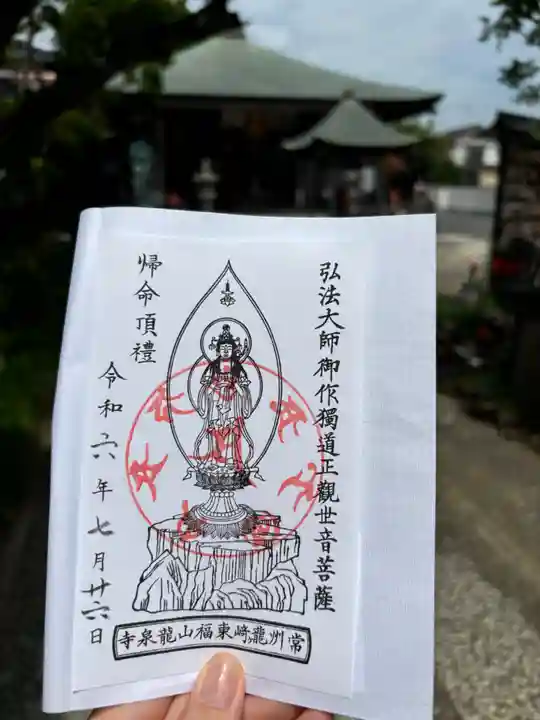 弘法大師御作獨道正觀世音菩薩
帰命頂禮
令和六年七月廿六日
常州龍崎東福山龍泉寺